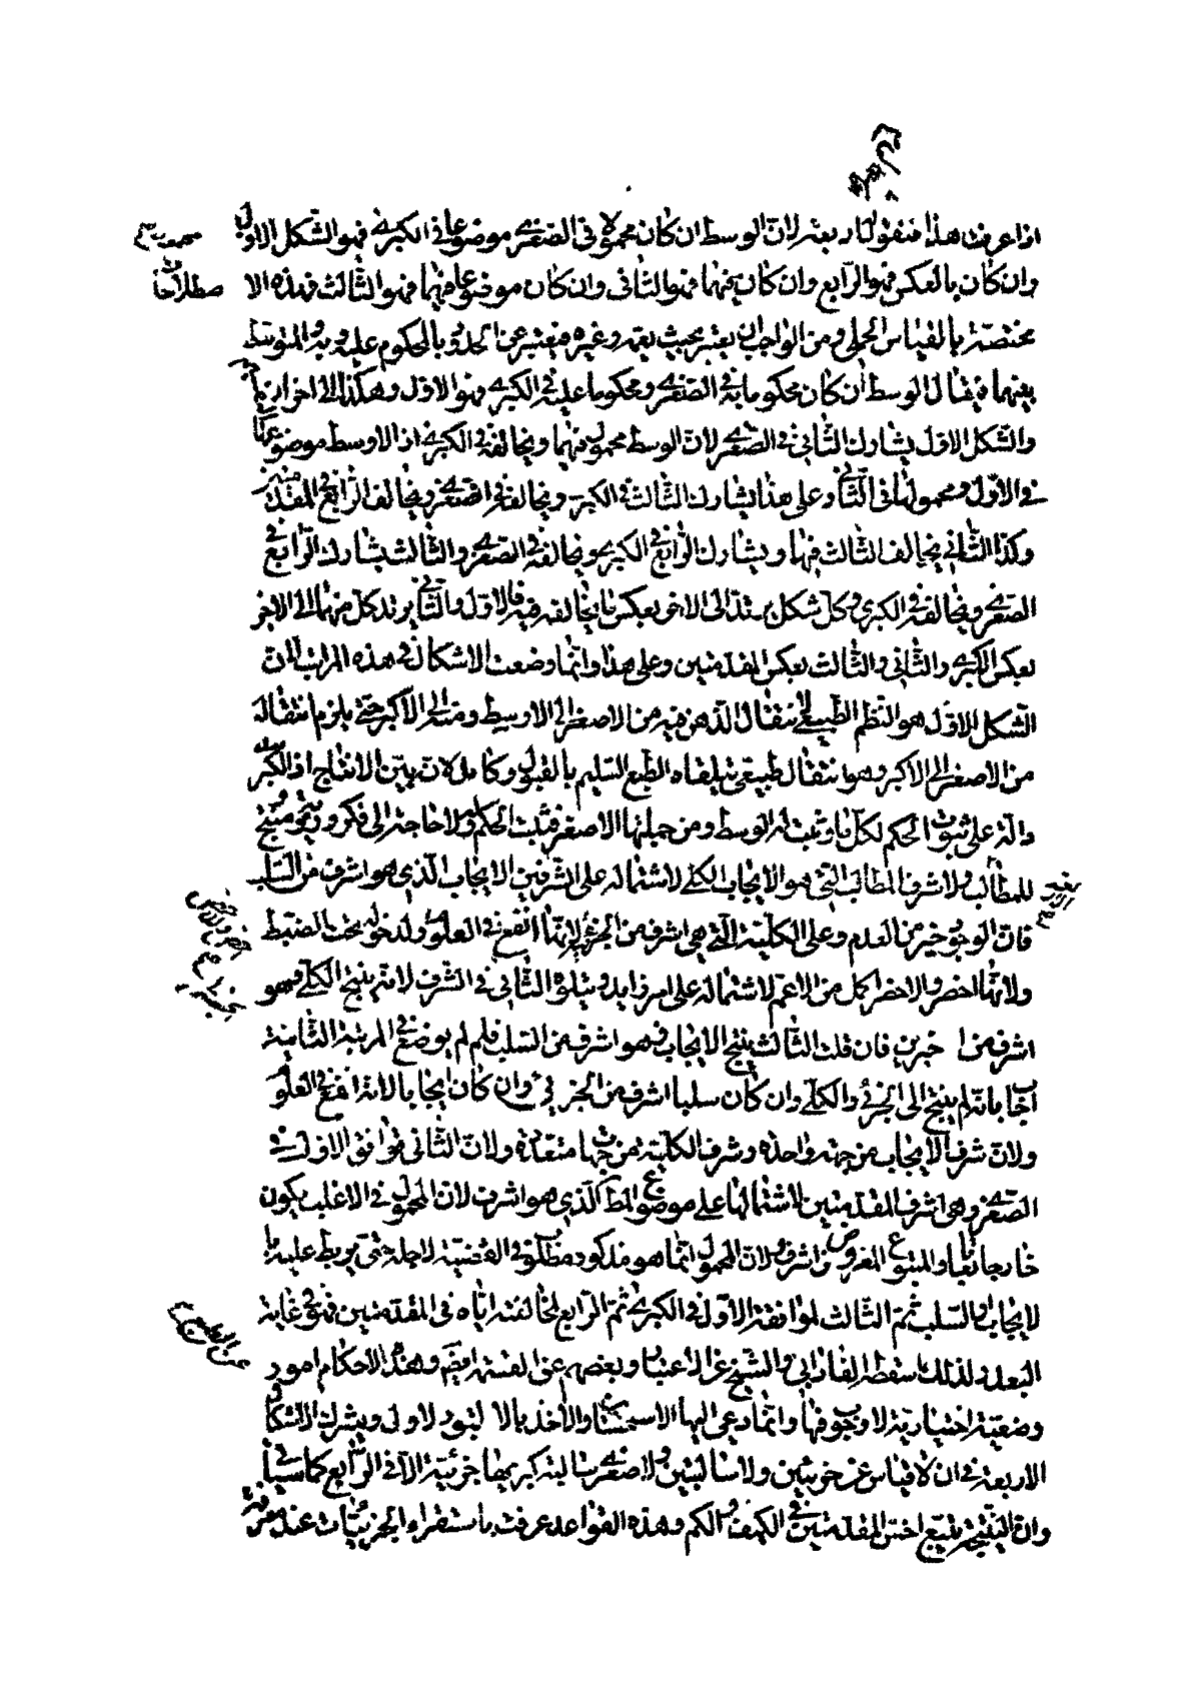 اذا عرفت هذا فنقول اربعة لان الوسط ان كان محمولا فى الصغرى موضوعا فى الكبرى فهو الشكل الاول
وان كان بالعكس فهو الرابع وان كان فيهما فهو الثانى وان كان موضوعا فيهما فهو الثالث فهذه الا
صطلاحات
مختصة بالقياس الحملى ومن الواجب ان يعتبر بحيث يعمه وغيره فيعتبر عن الحدود بالمحكوم عليه وبه المتوسط
بينهما فيقال الوسط ان كان محكوما به فى الصغرى ومحكوما عليه فى الكبرى فهو الاول وهكذا الى اخر
والشكل الاول يشارك الثانى فى الصغرى لان الوسط محمول فيهما ويخالفه فى الكبرى اذ الاوسط موضوعها
فى الاول ومحمولها فى الثانى وعلى هذا يشارك الثالث فى الكبرى ويخالفه فى الصغرى ويخالف الرابع فى المقدمتين
وكذا الثانى يخالف الثالث فيها ويشارك الرابع فى الكبرى ويخالفه فى الصغرى والثالث يشارك الرابع فى
الصغرى ويخالفه فى الكبرى وكل شكل يرتد الى الاخر بعكس ما يخالفه فيه فالاول والثانى يرتد كل منهما الى الاخر
بعكس الكبرى والثانى والثالث بعكس المقدمتين وعلى هذا وانما وضعت الاشكال فى هذه المراتب لان
الشكل الاول هو النظم الطبيعى لانتقال الذهن فيه من الاصغر الى الاوسط ومنه الى الاكبر حتى يلزم انتقاله
من الاصغر الى الاكبر وهو انتقال طبيعى يتلقاه الطبع السليم بالقبول وكامل لانه بين الانتاج اذ الكبرى
دالة على ثبوت الحكم لكل ما يثبت له الوسط ومن جملتها الاصغر فيثبت الحكم له ولا حاجة الى فكر وروية ومنتج
للمطالب ولاشرف المطالب التى هو الايجاب الكلى لاشتماله على الشرفين الايجاب الذى هو اشرف من السلب
فان الوجود خير من العدم وعلى الكلية التى هى اشرف من الجزئية لانها انفع فى العلوم ولدخوله تحت الضبط
ولانها اخص والاخص اكمل من الاعم لاشتماله على امر زايد ويتلوه الثانى فى الشرف لانه ينتج الكلى وهو
اشرف من ا خيرين فان قلت الثالث ينتج الايجاب فهو اشرف من السلب فلم لم يوضع فى المرتبة الثانية
اجاب بانه لم ينتج الى الجزئى والكلى وان كان سلبا اشرف من الجزئى وان كان ايجابا لانه انفع فى العلوم
ولان شرف الايجاب من جهة واحدة وشرف الكلية من جهات متعددة ولان الثانى موافق الاول فى
الصغرى وهى اشرف المقدمتين لاشتمالها على موضوع المط الذى هو اشرف لان المحمول فى الاغلب يكون
خارجا تابعا والمتبوع المعروض اشرف ولان المحمول انما هو مذكور مطلوب فى القضية لاجله حتى يربط عليه با
لايجاب والسلب ثم الثالث لموافقته الاول فى الكبرى ثم الرابع لمخالفته اياه فى المقدمتين فهو فى غاية
البعد ولذلك اسقطه الفارابى والشيخ عن الاعتبار وبعضهم عن القسمة ايضا وهذه الاحكام امور
وضعية اختيارية لا وجوب فيها وانما دعى اليها الاستحسان والاخذ بالاليق والاولى ويشترك الاشكال
الاربعة فى ان لا قياس عن جزئيتين ولا سالبتين ولا صغرى سالبة كبريها جزئية الا فى الرابع كما سيأتى
وان النتيجة يتبع اخس المقدمتين فى الكيف والكم وهذه القواعد عرفت باستقراء الجزئيات عند معرفة